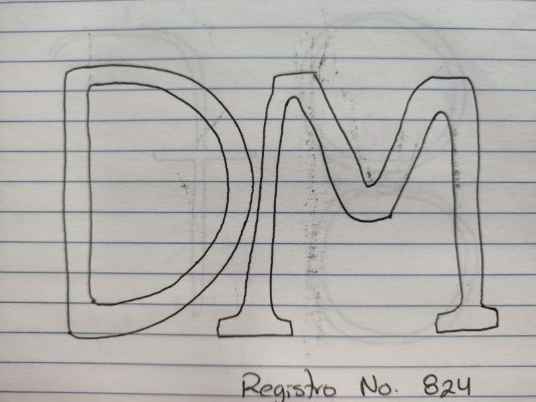 DM
Registro No. 824